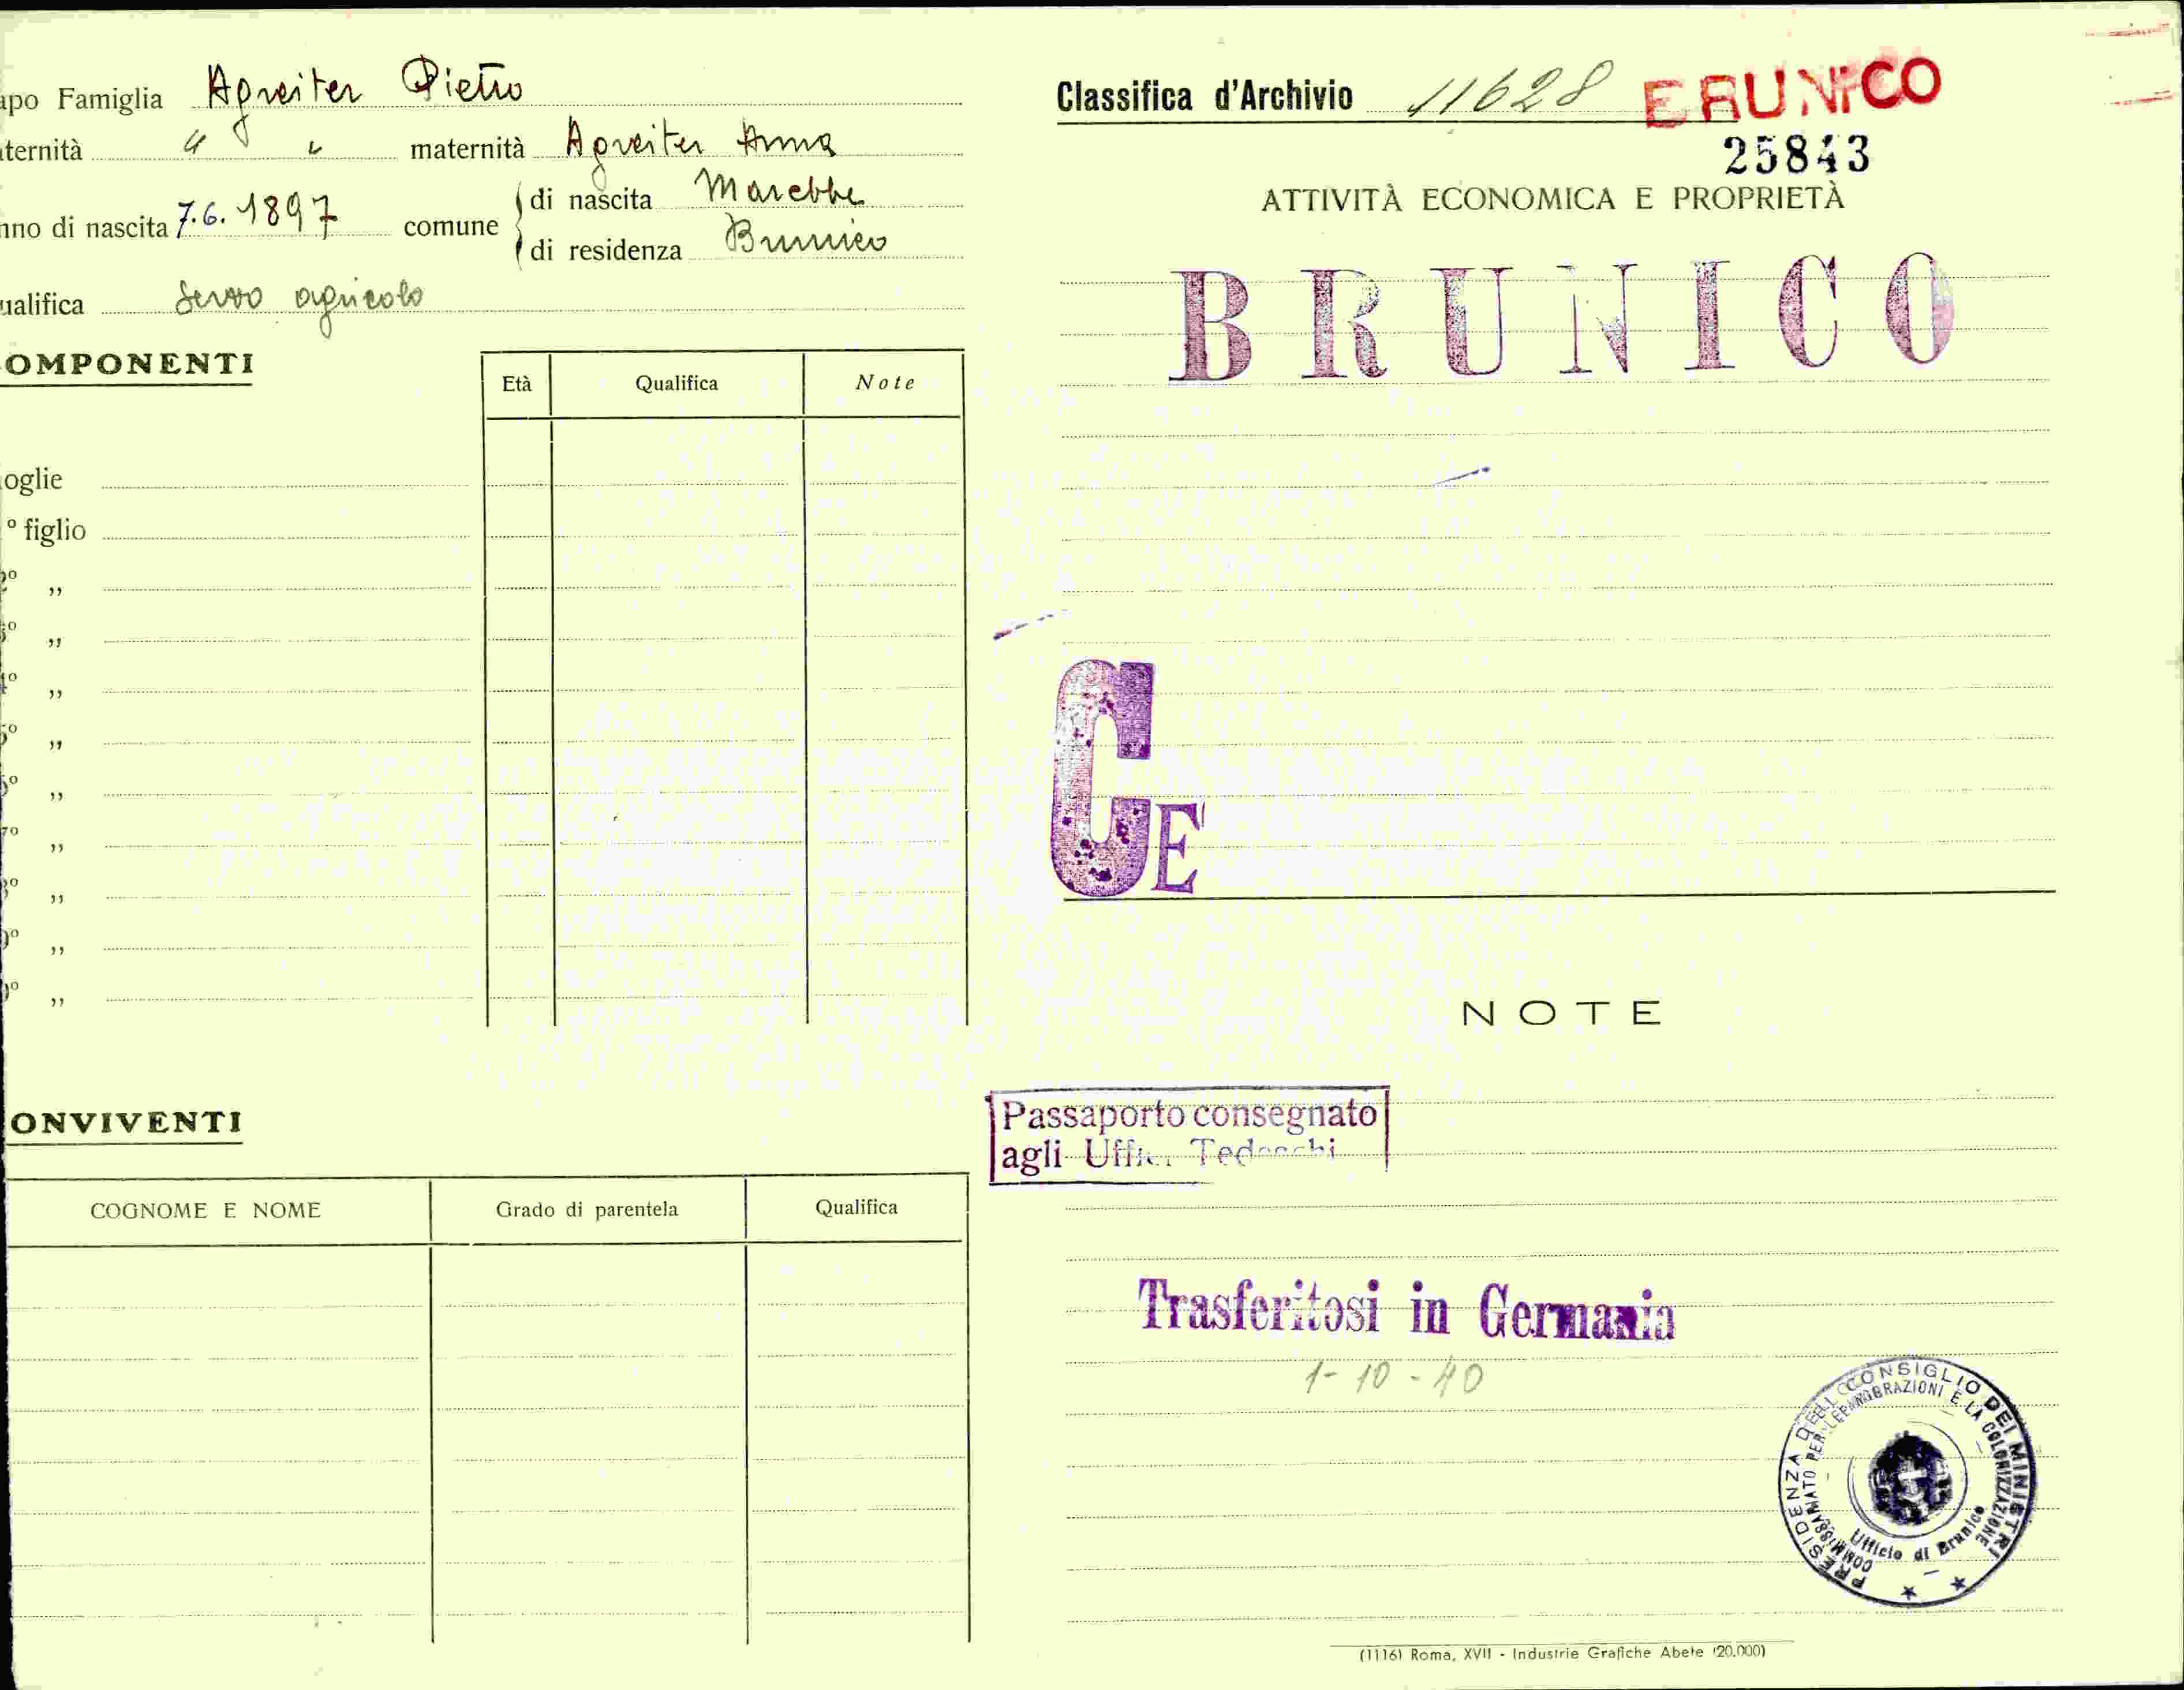 apo Famiglia Agreiter Pietro
aternità " " maternità Agreiter Anna
nno di nascita 7.6.1897 comune di nascita Marebbe
di residenza Brunico
ualifica Servo agricolo
OMPONENTI
Età Qualifica Note
oglie
º figlio
2º „
3º „
4º „
5º „
6º „
7º „
8º „
9º „
0º „
ONVIVENTI
COGNOME E NOME Grado di parentela Qualifica
Classifica d'Archivio 11628 BRUNICO
25843
ATTIVITÀ ECONOMICA E PROPRIETÀ
BRUNICO
CE
NOTE
Passaporto consegnato
agli Uffici Tedeschi
Trasferitosi in Germania
1-10-40
PRESIDENZA DEL CONSIGLIO DEI MINISTRI
COMMISSARIATO PER LE MIGRAZIONI E LA COLONIZZAZIONE
Ufficio di Brunico
(1116) Roma, XVII - Industrie Grafiche Abete (20.000)